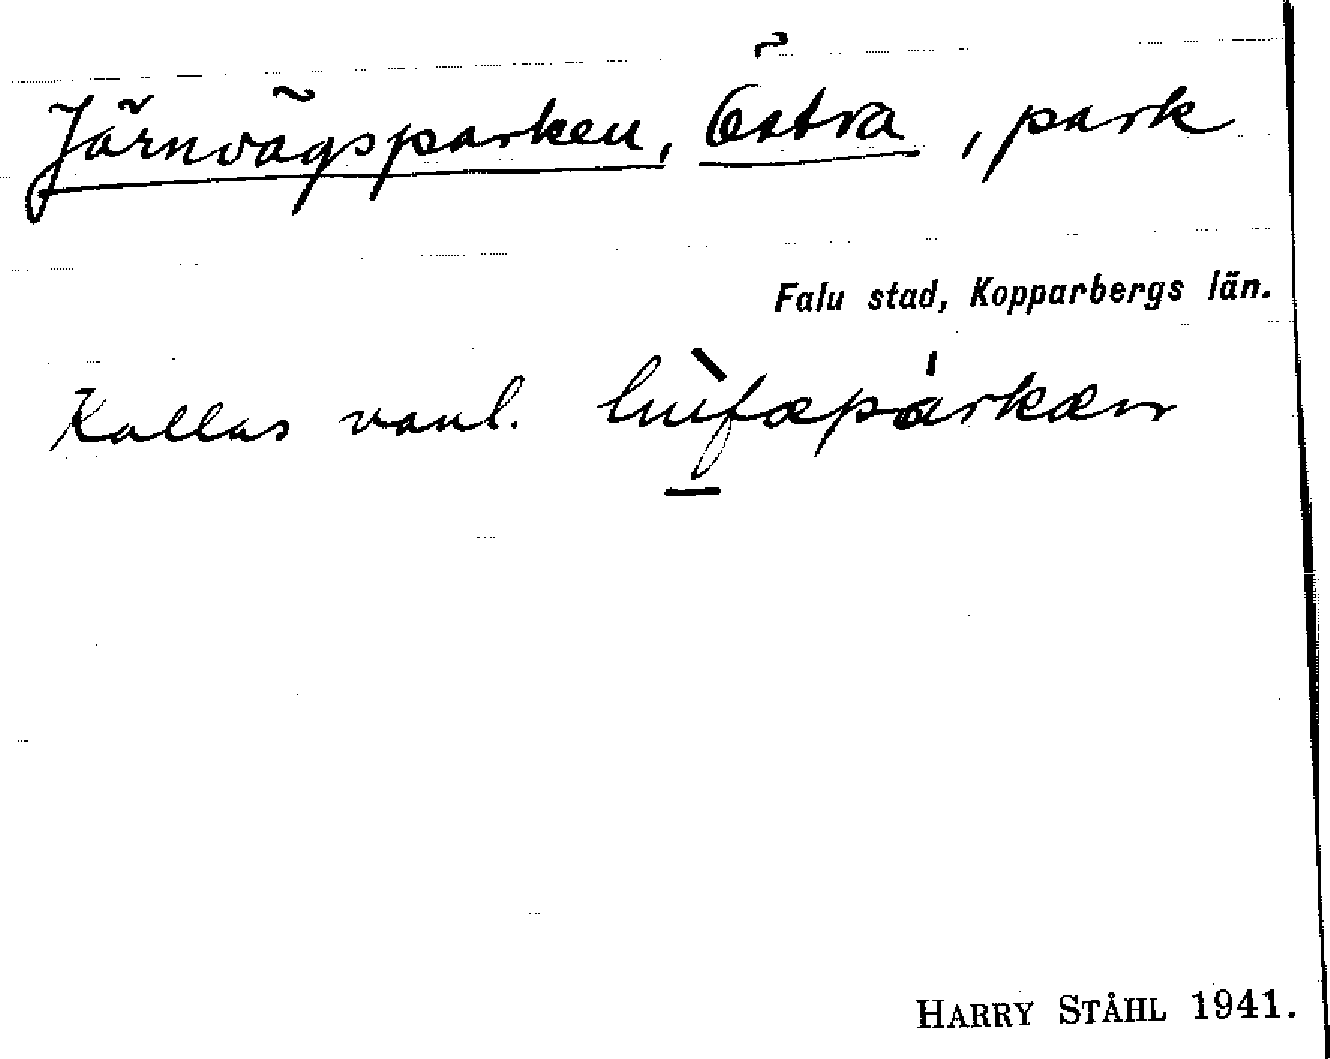 Järnvägsparken, Östra, park
Falu stad, Kopparbergs län.
Kallas vanl.
HARRY STÅHL 1941.